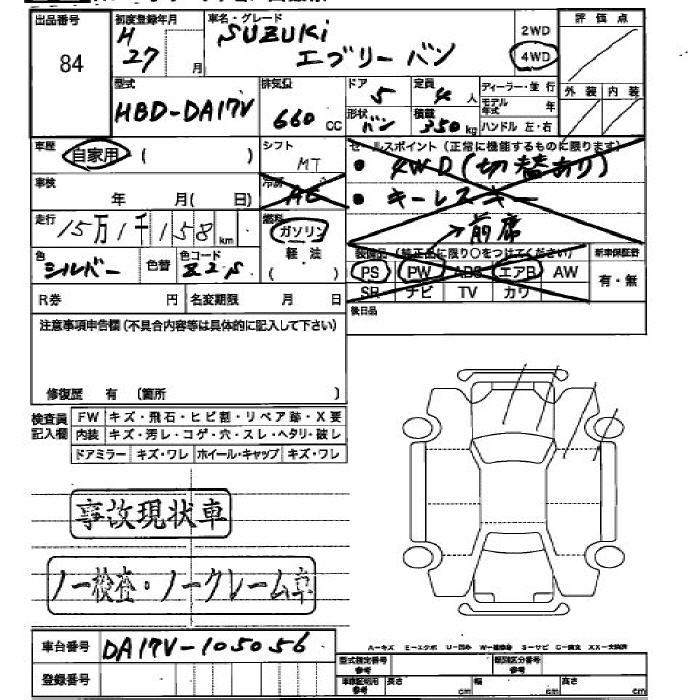 出品番号 84
初度登録年月 H 27 月
車名・グレード SUZUKi エブリー バン
2WD
4WD
評価点
外装 内装
型式 HBD-DA17V
排気量 660 CC
ドア 5
定員 4 人
形状 バン
積載 350 kg
ディーラー・並行
モデル年式 年
ハンドル 左・右
車歴 自家用 ( )
シフト MT
セールスポイント(正常に機能するものに限ります)
● 4WD(切替あり)
● キーレスキー
→前席
車検 年 月( 日)
冷房 AC
走行 15万1千158 km
燃料 ガソリン
軽油
( )
色 シルバー 色替 色コード Z2S
装備品(純正品に限り○をつけてください)
PS PW ABS エアB AW
SR ナビ TV カワ
新車保証書
有・無
R券 円 名変期限 月 日
後日品
注意事項申告欄(不具合内容等は具体的に記入して下さい)
修復歴 有 〔箇所 〕
検査員記入欄
FW キズ・飛石・ヒビ割・リペア跡・X要
内装 キズ・汚レ・コゲ・穴・スレ・ヘタリ・破レ
ドアミラー キズ・ワレ ホイール・キャップ キズ・ワレ
事故現状車
ノー検査・ノークレーム車
車台番号 DA17V-105056
登録番号
A-キズ E-エクボ U-凹み W-補修跡 S-サビ C-腐食 XX-交換済
型式指定番号 参考
類別区分番号 参考
車検証記用 参考
長さ cm 幅 cm 高さ cm